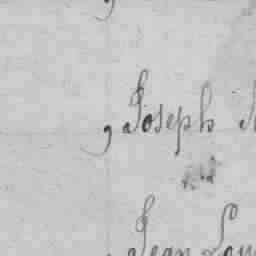 , Joseph
Jean Lou